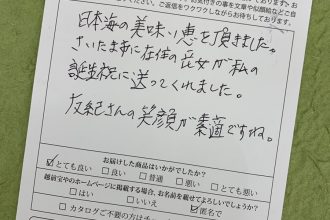 ご返信をワクワクしながらお待ちしております。
日本海の美味い恵を頂きました。
さいたま市に在住の長女が私の
誕生祝に送ってくれました。
友紀さんの笑顔が素適ですね。
お届けした商品はいかがでしたか?
☑とても良い □良い □普通 □悪い □とても悪い
越前宝やのホームページに掲載する場合、お名前を載せてよろしいでしょうか?
□はい □いいえ ☑匿名で
□カタログご不要の方はチ